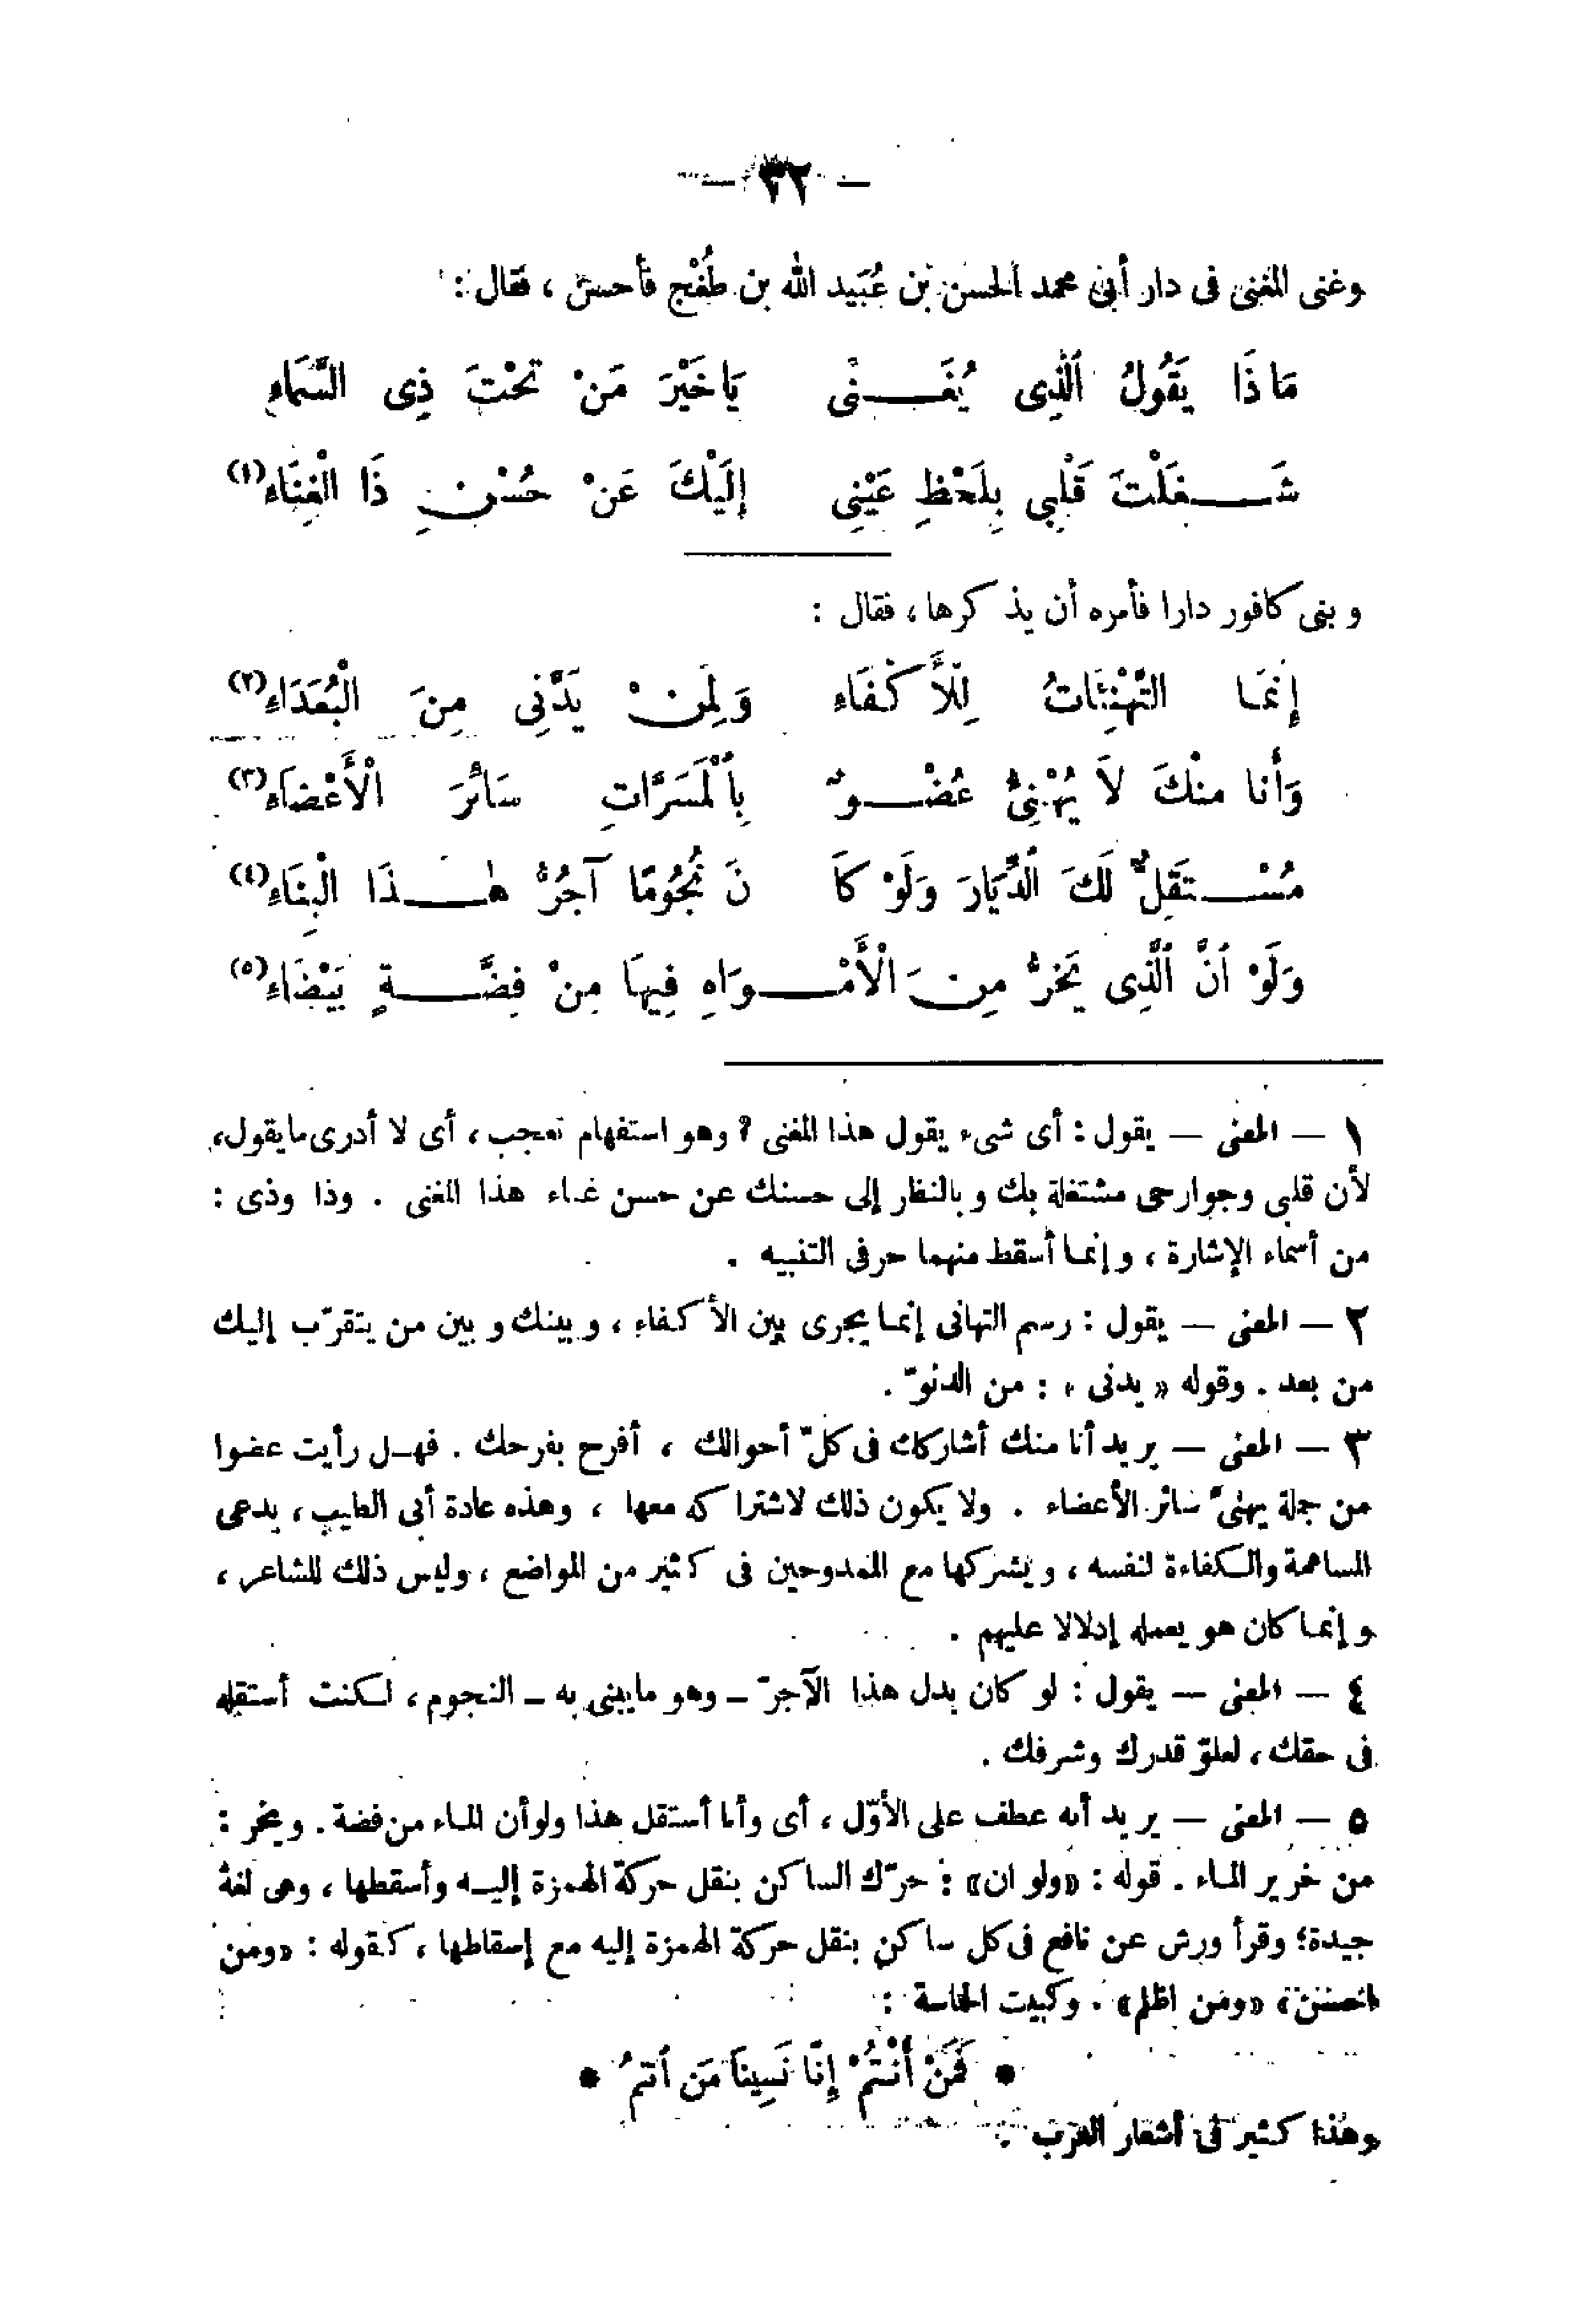 — ٣٢ —
وغنى المغنى فى دار أبى محمد الحسن بن عُبَيد الله بن طُغْج فأحسن ، فقال :
مَاذَا يَقُولُ ٱلَّذِى يُغَـــنِّى يَاخَيْرَ مَنْ تَحْتَ ذِى السَّمَاءِ
شَـــغَلْتَ قَلْبِى بِلَحْظِ عَيْنِى إِلَيْكَ عَنْ حُسْنِ ذَا الْغِنَاءِ(١)
وبنى كافور دارا فأمره أن يذكرها ، فقال :
إِنَّمَا التَّهْنِئَاتُ لِلْأَكْفَاءِ وَلِمَنْ يَدَّنِى مِنَ الْبُعَدَاءِ(٢)
وَأَنا مِنْكَ لاَ يُهْنِئُ عُضْـــوٌ بِٱلْمَسَرَّاتِ سَائِرَ الْأَعْضَاءِ(٣)
مُسْـــتَقِلٌّ لَكَ ٱلدِّيَارَ وَلَوْ كَا نَ نُجُومًا آجُرُّ هٰـــذَا الْبِنَاءِ(٤)
وَلَوْ ٱنَّ ٱلَّذِى يَخِرُّ مِنَ الْأَمْـــوَاهِ فِيهَا مِنْ فِضَّـــةٍ بَيْضَاءِ(٥)
١ — المعنى — يقول : أى شىء يقول هذا المغنى ؟ وهو استفهام تعجب ، أى لا أدرى مايقول،
لأن قلبى وجوارحى مشتغلة بك وبالنظر إلى حسنك عن حسن غناء هذا المغنى . وذا وذى :
من أسماء الإشارة ، وإنما أسقط منهما حرفى التنبيه .
٢ — المعنى — يقول : رسم التهانى إنما يجرى بين الأكفاء ، وبينك وبين من يتقرّب إليك
من بعد . وقوله « يدنى » : من الدنوّ .
٣ — المعنى — يريد أنا منك أشاركك فى كلّ أحوالك ، أفرح بفرحك . فهـل رأيت عضوا
من جملة يهنىّ سائر الأعضاء . ولا يكون ذلك لاشتراكه معها ، وهذه عادة أبى الطيب ، يدعى
المساهمة والكفاءة لنفسه ، ويشركها مع الممدوحين فى كثير من المواضع ، وليس ذلك للشاعر ،
وإنما كان هو يعمله إدلالا عليهم .
٤ — المعنى — يقول : لو كان بدل هذا الآجرّ ـ وهو مايبنى به ـ النجوم ، لكنت أستقله
فى حقك ، لعلوّ قدرك وشرفك .
٥ — المعنى — يريد أنه عطف على الأوّل ، أى وأنا أستقل هذا ولوأن الماء من فضة . ويخر :
من خرير الماء . قوله : «ولو ان» : حرّك الساكن بنقل حركة الهمزة إليـه وأسقطها ، وهى لغة
جيدة؛ وقرأ ورش عن نافع فى كل ساكن بنقل حركة الهمزة إليه مع إسقاطها ، كقوله : «ومن
احسن» ، «ومن اظلم» . وكبيت الحماسة :
* فَمَنْ أَنْتُمْ إِنَّا نَسِيناَ مَن ٱنتمُ *
وهذا كثير فى أشعار العرب .